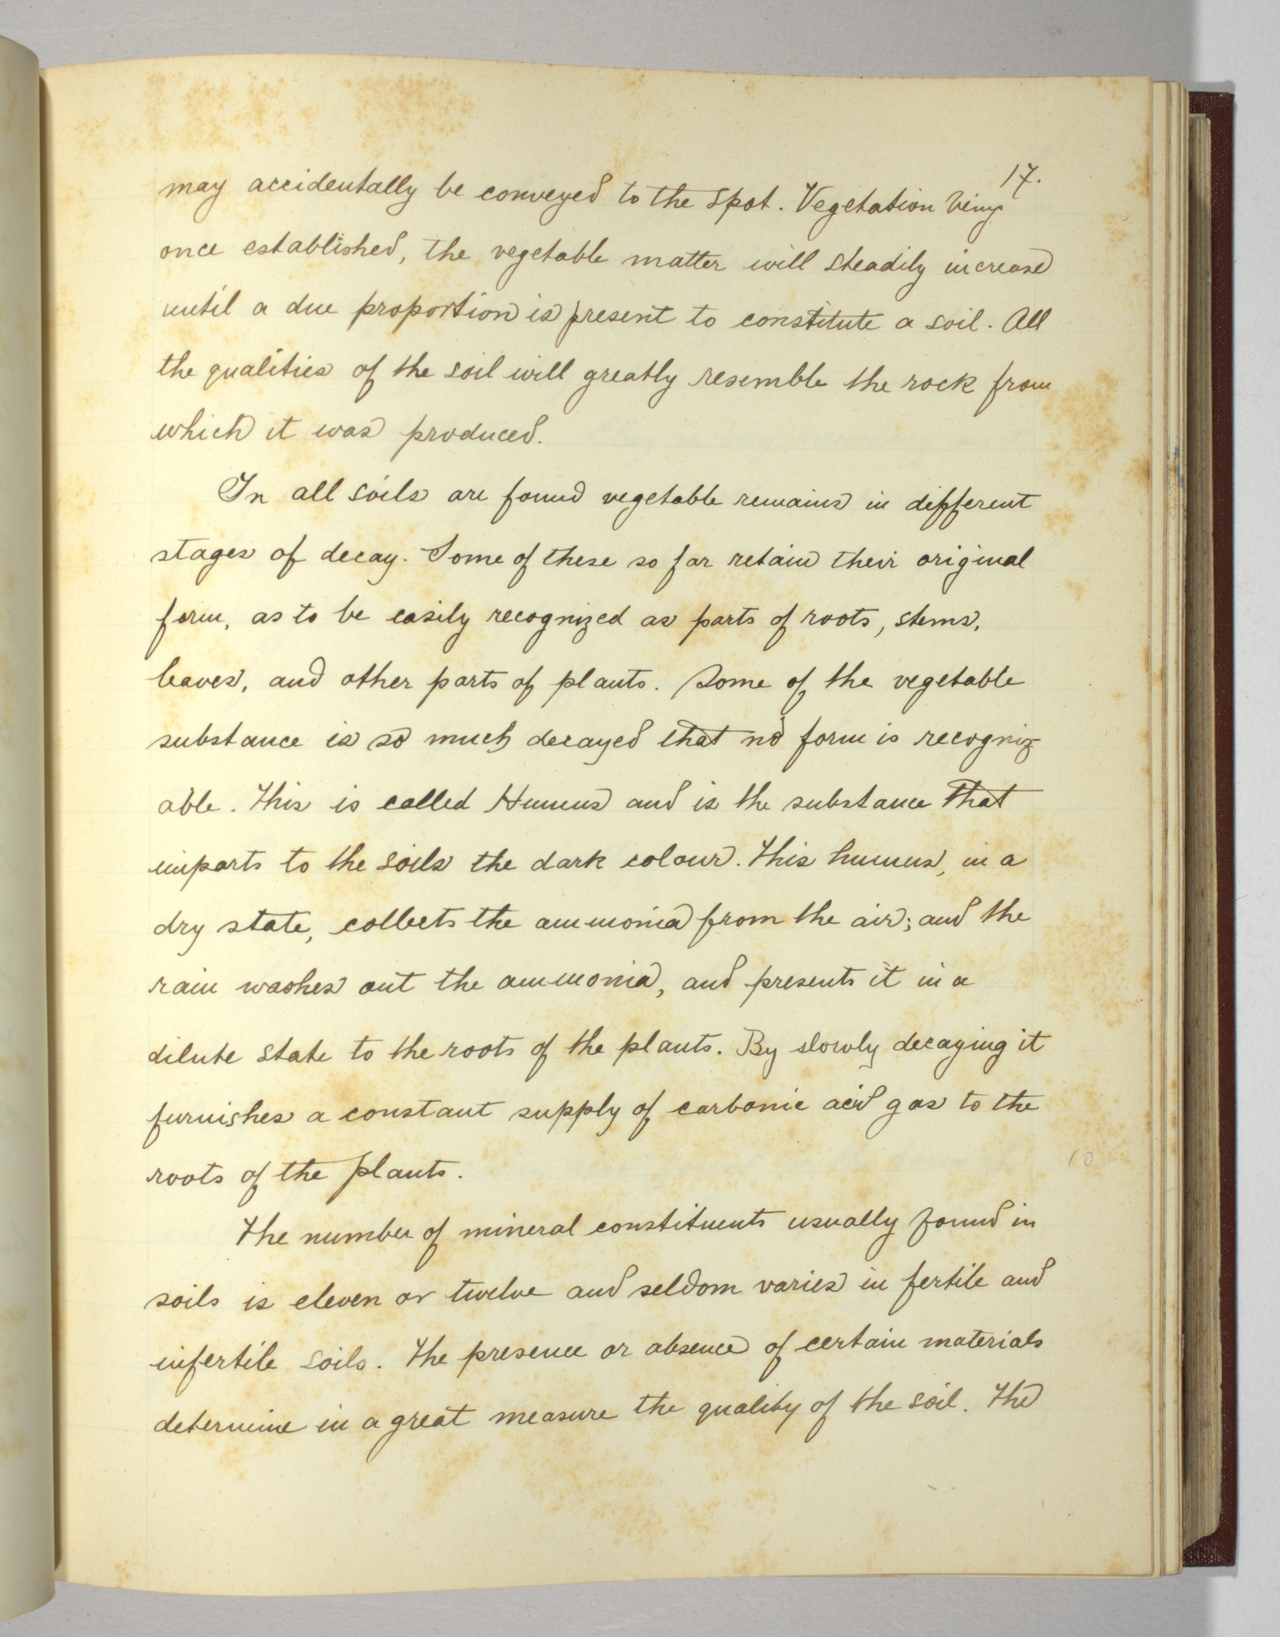 17.
may accidentally be conveyed to the spot. Vegetation being
once established, the vegetable matter will steadily increase
until a due proportion is present to constitute a soil. All
the qualities of the soil will greatly resemble the rock from
which it was produced.
In all soils are found vegetable remains in different
stages of decay. Some of these so far retain their original
form, as to be easily recognized as parts of roots, stems,
leaves, and other parts of plants. Some of the vegetable
substance is so much decayed that no form is recogniz
able. This is called Humus and is the substance that
imparts to the soils the dark colour. This humus, in a
dry state, collects the ammonia from the air; and the
rain washes out the ammonia, and presents it in a
dilute state to the roots of the plants. By slowly decaying it
furnishes a constant supply of carbonic acid gas to the
roots of the plants.
10
The number of mineral constituents usually found in
soils is eleven or twelve and seldom varies in fertile and
infertile soils. The presence or absence of certain materials
determine in a great measure the quality of the soil. The